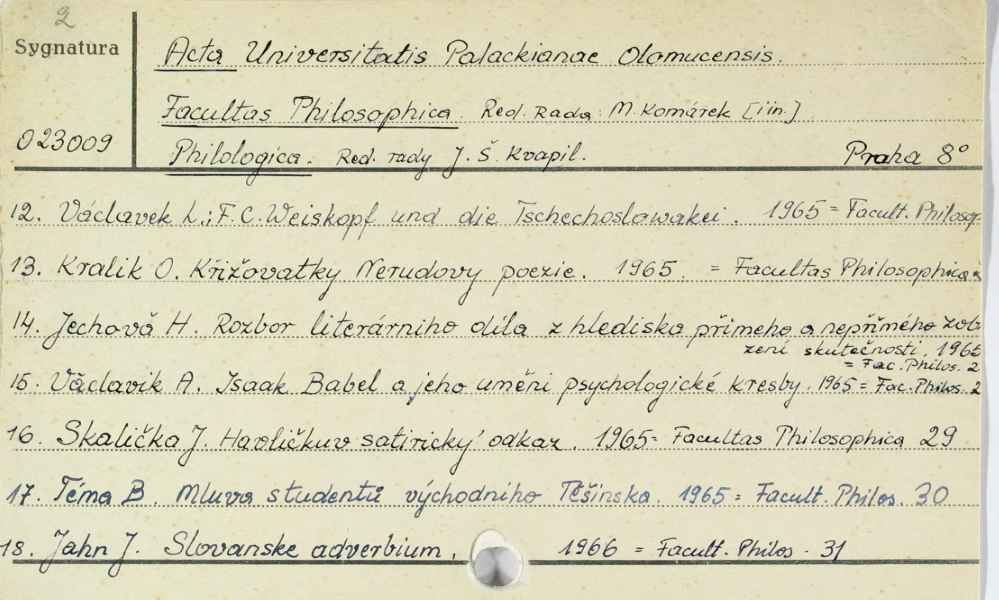 2
Sygnatura
Acta Universitatis Palackianae Olomucensis.
Facultas Philosophica. Red. Rada: M. Komárek [i in.]
023009
Philologica. Red. rady J. Š. Kvapil. Praha 8°
12. Václavek L.: F. C. Weiskopf und die Tschechoslowakei. 1965 = Facult. Philosop
13. Kralik O. Křižovatky Nerudovy poezie. 1965. = Facultas Philosophica
14. Jechová H. Rozbor literárniho díla z hlediska přimeho a nepřímého zob
zení skutečnosti. 1965
= Fac. Philos. 2
15. Václavik A. Isaak Babel a jeho uměni psychologické kresby. 1965 = Fac. Philos. 2
16. Skalička J. Havličkuv satirický odkaz. 1965 = Facultas Philosophica 29
17. Téma B. Mluva studentů východniho Těšinska. 1965 = Facult. Philos. 30
18. Jahn J. Slovanske adverbium. 1966 = Facult. Philos. 31